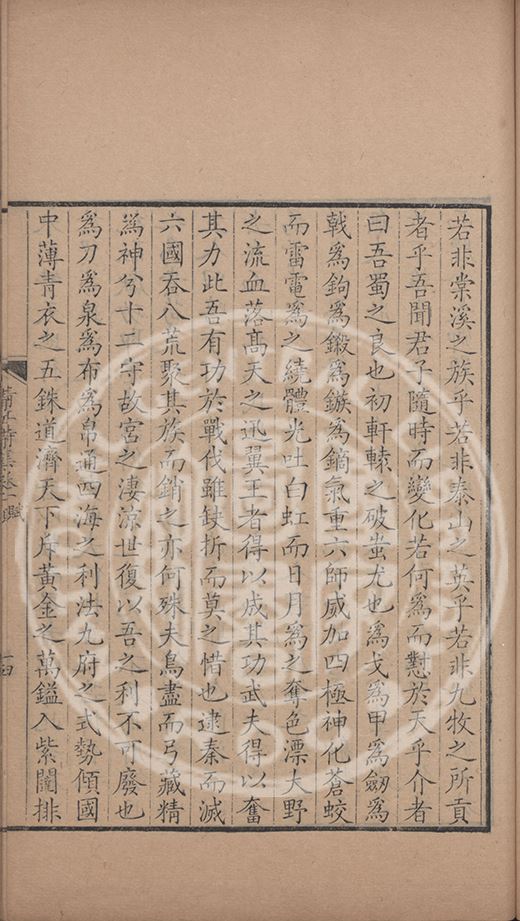 若非棠溪之族乎若非泰山之英乎若非九牧之所貢
者乎吾聞君子隨時而變化若何爲而懟於天乎介者
曰吾蜀之良也初軒轅之破蚩尤也爲戈爲甲爲劒爲
戟爲鉤爲鍛爲鏃爲鏑氣重六師威加四極神化蒼蛟
而雷電爲之繞體光吐白虹而日月爲之奪色漂大野
之流血落髙天之迅翼王者得以成其功武夫得以奮
其力此吾有功於戰伐雖缺折而莫之惜也逮秦而滅
六國吞八荒聚其族而銷之亦何殊夫鳥盡而弓藏精
爲神兮十二守故宮之淒涼世復以吾之利不可廢也
爲刀爲泉爲布爲帛通四海之利法九府之式勢傾國
中薄青衣之五銖道濟天下斥黃金之萬鎰入紫闥排
集卷一 賦